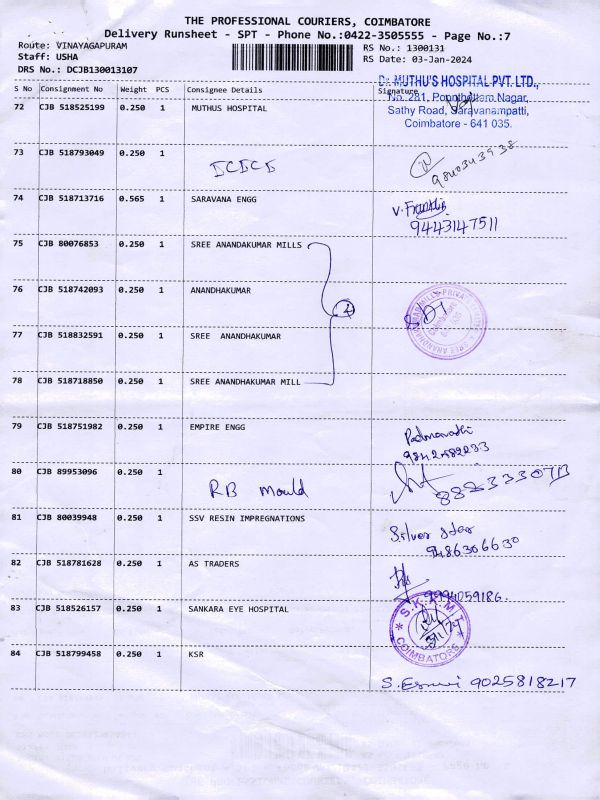 THE PROFESSIONAL COURIERS, COIMBATORE
Delivery Runsheet - SPT - Phone No.:0422-3505555 - Page No.:7
Route: VINAYAGAPURAM
Staff: USHA
DRS No.: DCJB130013107
RS No.: 1300131
RS Date: 03-Jan-2024
S No Consignment No Weight PCS Consignee Details Signature
Dr. MUTHU'S HOSPITAL PVT. LTD.,
No. 281, Nagar,
Sathy Road, Saravanampatti,
Coimbatore - 641 035.
72 CJB 518525199 0.250 1 MUTHUS HOSPITAL
73 CJB 518793049 0.250 1
ICICI
74 CJB 518713716 0.565 1 SARAVANA ENGG V. Franklin
9443147511
75 CJB 80076853 0.250 1 SREE ANANDAKUMAR MILLS
76 CJB 518742093 0.250 1 ANANDHAKUMAR
4
77 CJB 518832591 0.250 1 SREE ANANDHAKUMAR
78 CJB 518718850 0.250 1 SREE ANANDHAKUMAR MILL
79 CJB 518751982 0.250 1 EMPIRE ENGG
80 CJB 89953096 0.250 1
RB Mould
81 CJB 80039948 0.250 1 SSV RESIN IMPREGNATIONS Silver star
9486306630
82 CJB 518781628 0.250 1 AS TRADERS
9994059186.
83 CJB 518526157 0.250 1 SANKARA EYE HOSPITAL
S.K.A.M.T
COIMBATORE
84 CJB 518799458 0.250 1 KSR
S. 9025818217